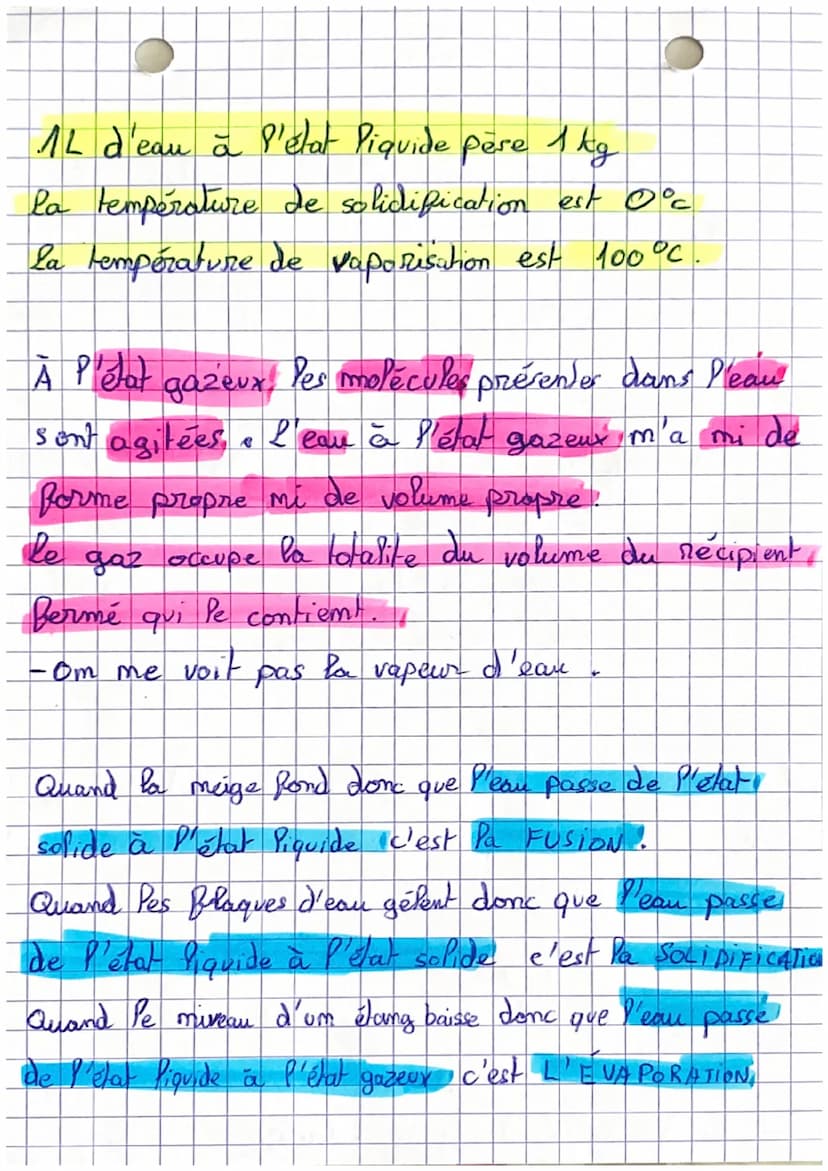 1L d'eau à l'état liquide pèse 1 kg
la température de solidification est 0°c
la température de vaporisation est 100°C.
À l'état gazeux, les molécules présentes dans l'eau
sont agitées. l'eau à l'état gazeux, n'a ni de
forme propre ni de volume propre.
le gaz occupe la totalite du volume du récipient
fermé qui le contient.
-On ne voit pas la vapeur d'eau.
Quand la neige fond donc que l'eau passe de l'état
solide à l'état liquide c'est la FUSION.
Quand les flaques d'eau gèlent donc que l'eau passe
de l'état liquide à l'état solide c'est la SOLIDIFICATION
Quand le niveau d'un étang baisse donc que l'eau passe
de l'état liquide à l'état gazeux, c'est L'ÉVAPORATION,